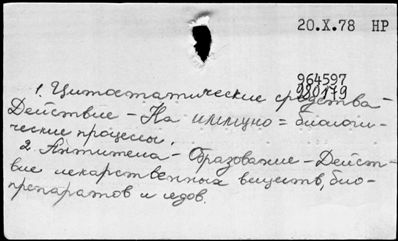 20.X.78 НР
964597
980179
1. Цитостатические средства-
Действие - На иммуно=биологи-
ческие процессы.
2. Антитела - Образование - Дейст-
вие лекарственных веществ, био-
препаратов и ядов.